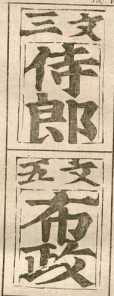 文三
侍郎
文五
布政